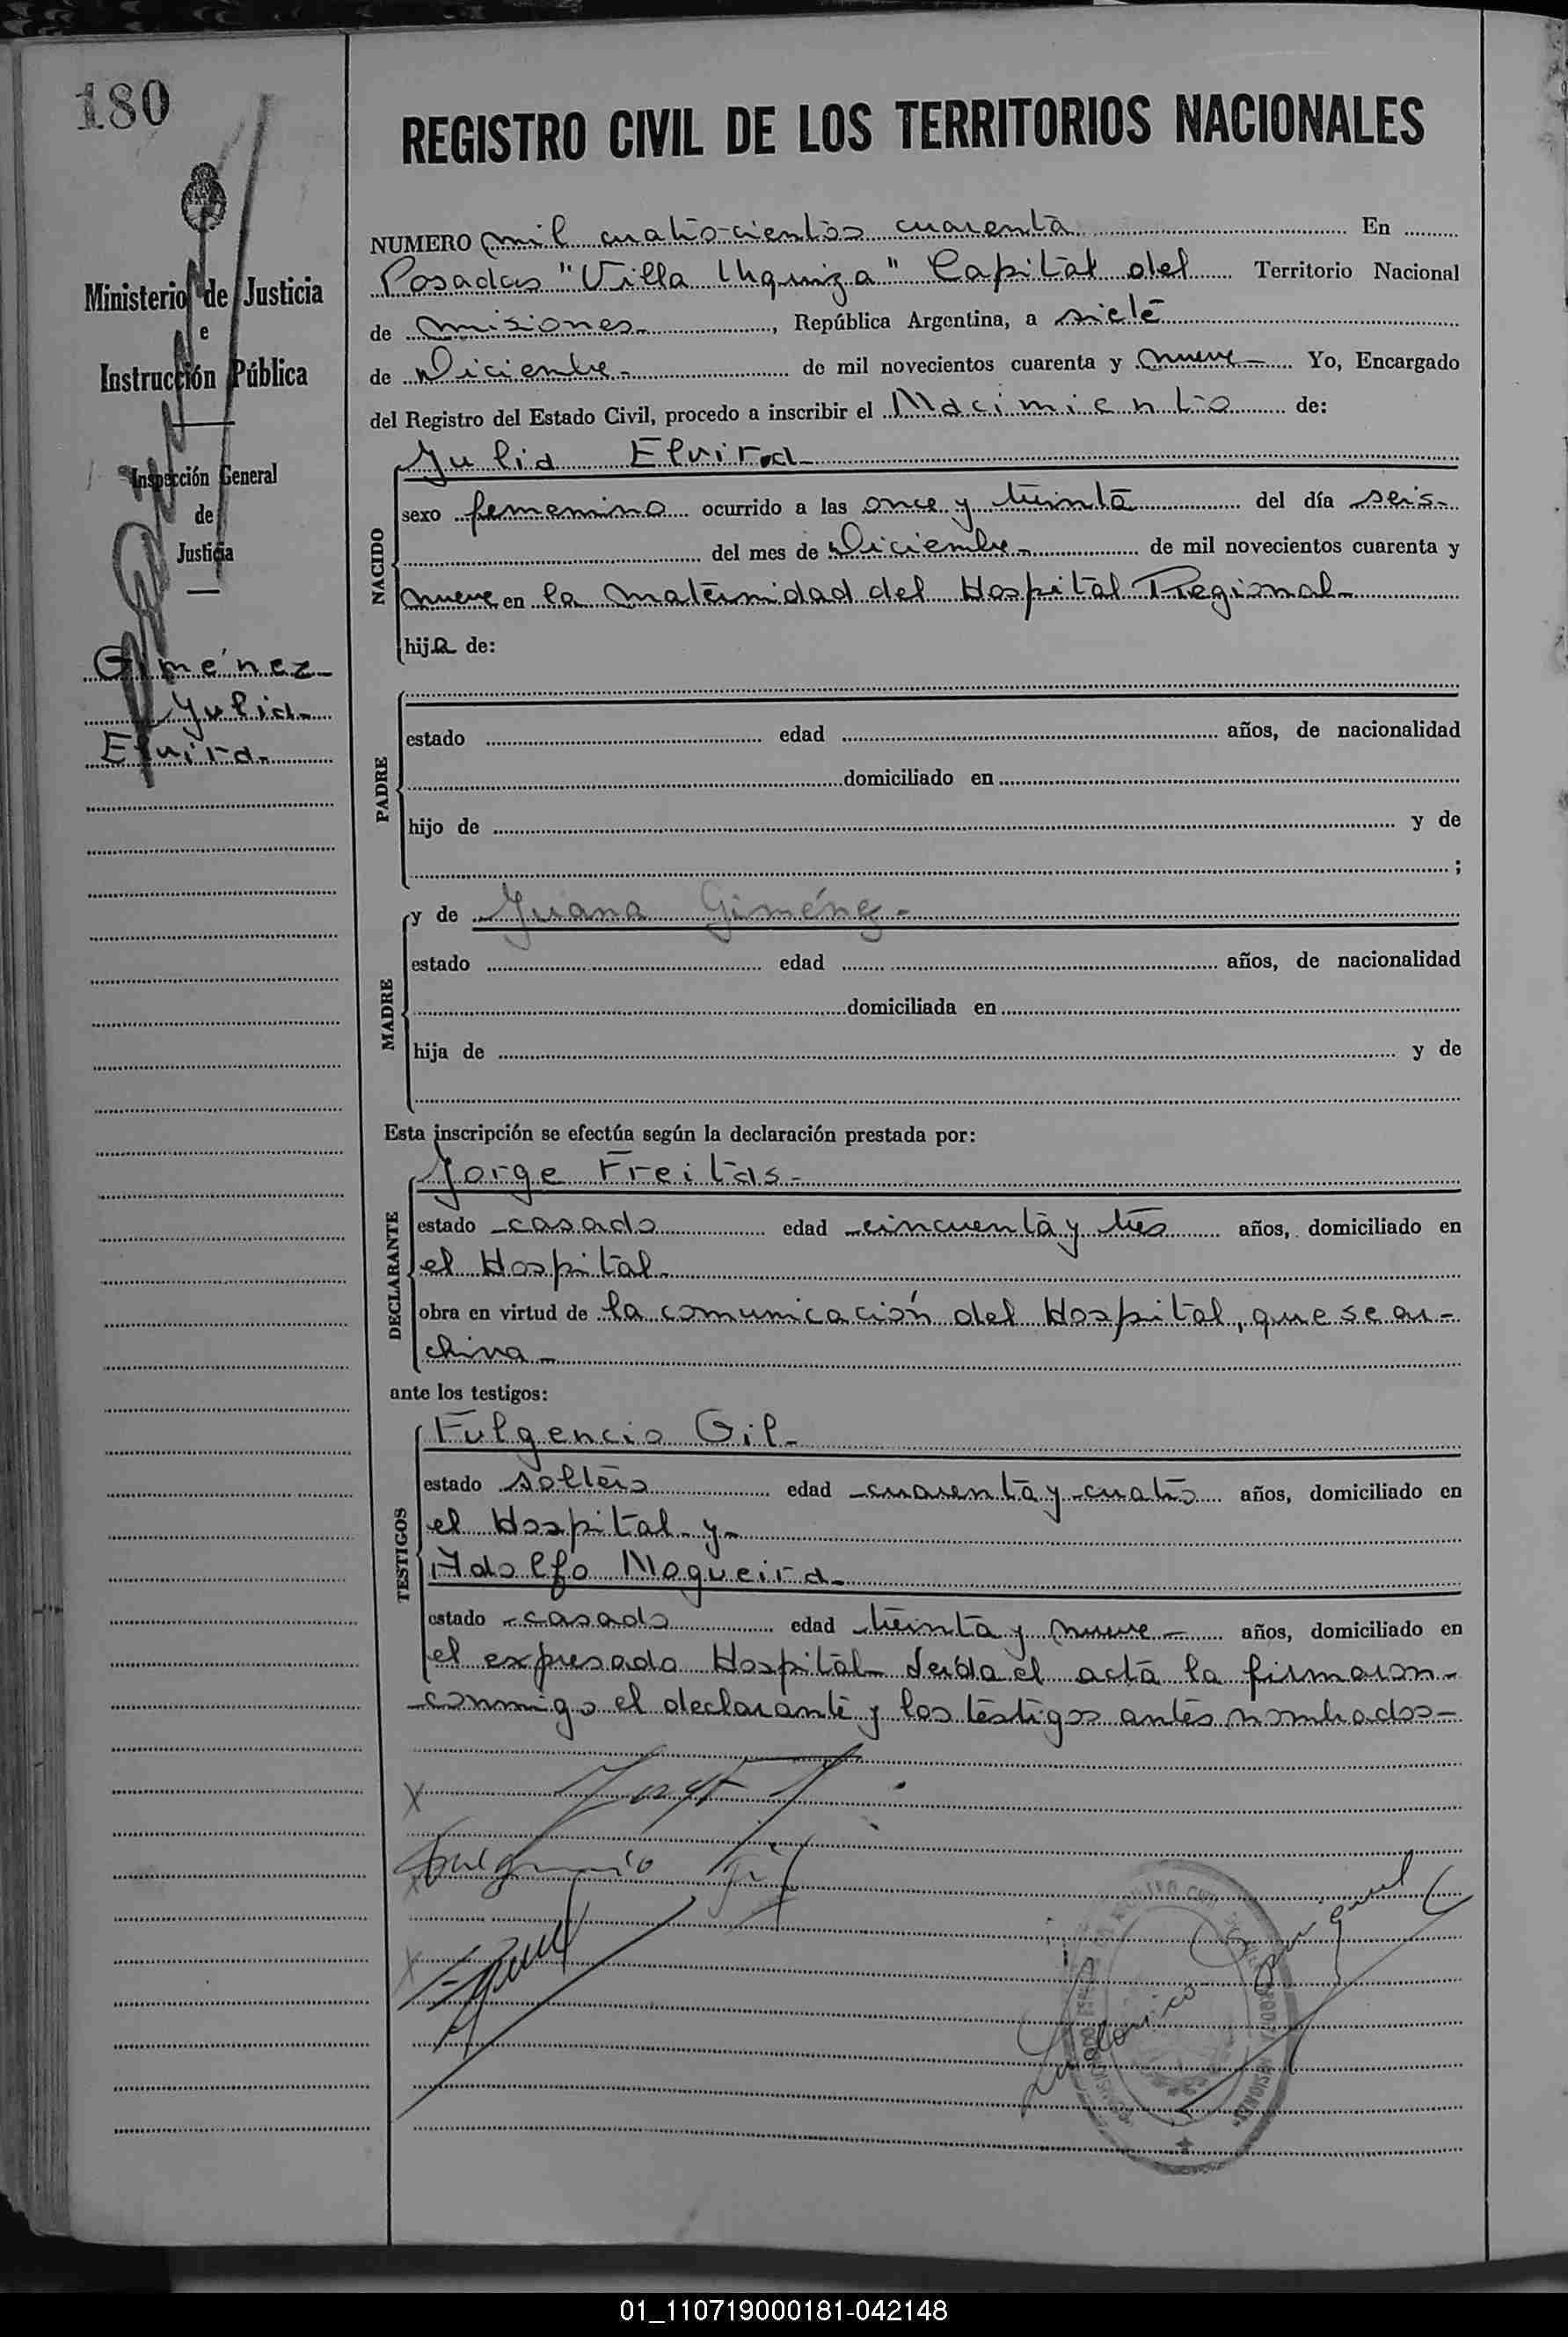 180
REGISTRO CIVIL DE LOS TERRITORIOS NACIONALES
Ministerio de Justicia
e
Instrucción Pública
Inspección General
de
Justicia
Giménez
Julia
Elvira
NUMERO mil cuatrocientos cuarenta En
Posadas "Villa Urquiza" Capital del Territorio Nacional
de Misiones, República Argentina, a siete
de Diciembre de mil novecientos cuarenta y nueve Yo, Encargado
del Registro del Estado Civil, procedo a inscribir el Nacimiento de:
NACIDO
Julia Elvira
sexo femenino ocurrido a las once y treinta del día seis
del mes de Diciembre de mil novecientos cuarenta y
nueve en la maternidad del Hospital Regional
hija de:
PADRE
estado edad años, de nacionalidad
domiciliado en
hijo de y de
;
MADRE
y de Juana Giménez
estado edad años, de nacionalidad
domiciliada en
hija de y de
Esta inscripción se efectúa según la declaración prestada por:
DECLARANTE
Jorge Freitas
estado casado edad cincuenta y tres años, domiciliado en
el Hospital
obra en virtud de la comunicación del Hospital, que se ar-
chiva
ante los testigos:
TESTIGOS
Fulgencio Gil
estado soltero edad cuarenta y cuatro años, domiciliado en
el Hospital y
Adolfo Nogueira
estado casado edad treinta y nueve años, domiciliado en
el expresado Hospital leída el acta la firmaron
conmigo el declarante y los testigos antes nombrados
Fulgencio Gil
01_110719000181-042148